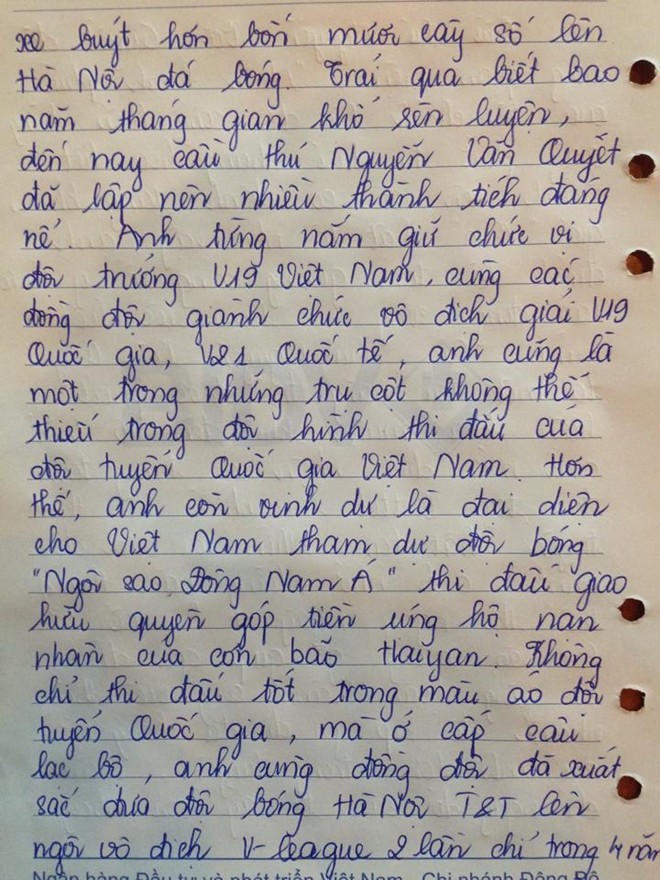 xe buýt hơn bốn mươi cây số lên
Hà Nội đá bóng. Trải qua biết bao
năm tháng gian khó rèn luyện,
đến nay cầu thủ Nguyễn Văn Quyết
đã lập nên nhiều thành tích đáng
nể. Anh từng nắm giữ chức vị
đội trưởng U19 Việt Nam, cùng các
đồng đội giành chức vô địch giải U19
Quốc gia, U21 Quốc tế, anh cũng là
một trong những trụ cột không thể
thiếu trong đội hình thi đấu của
đội tuyển Quốc gia Việt Nam. Hơn
thế, anh còn vinh dự là đại diện
cho Việt Nam tham dự đội bóng
"Ngôi sao Đông Nam Á" thi đấu giao
hữu quyên góp tiền ủng hộ nạn
nhân của cơn bão Haiyan. Không
chỉ thi đấu tốt trong màu áo đội
tuyển Quốc gia, mà ở cấp câu
lạc bộ, anh cùng đồng đội đã xuất
sắc đưa đội bóng Hà Nội T&T lên
ngôi vô địch V-league 2 lần chỉ trong 4 năm
Ngân hàng Đầu tư và phát triển Việt Nam - Chi nhánh Đông Đô